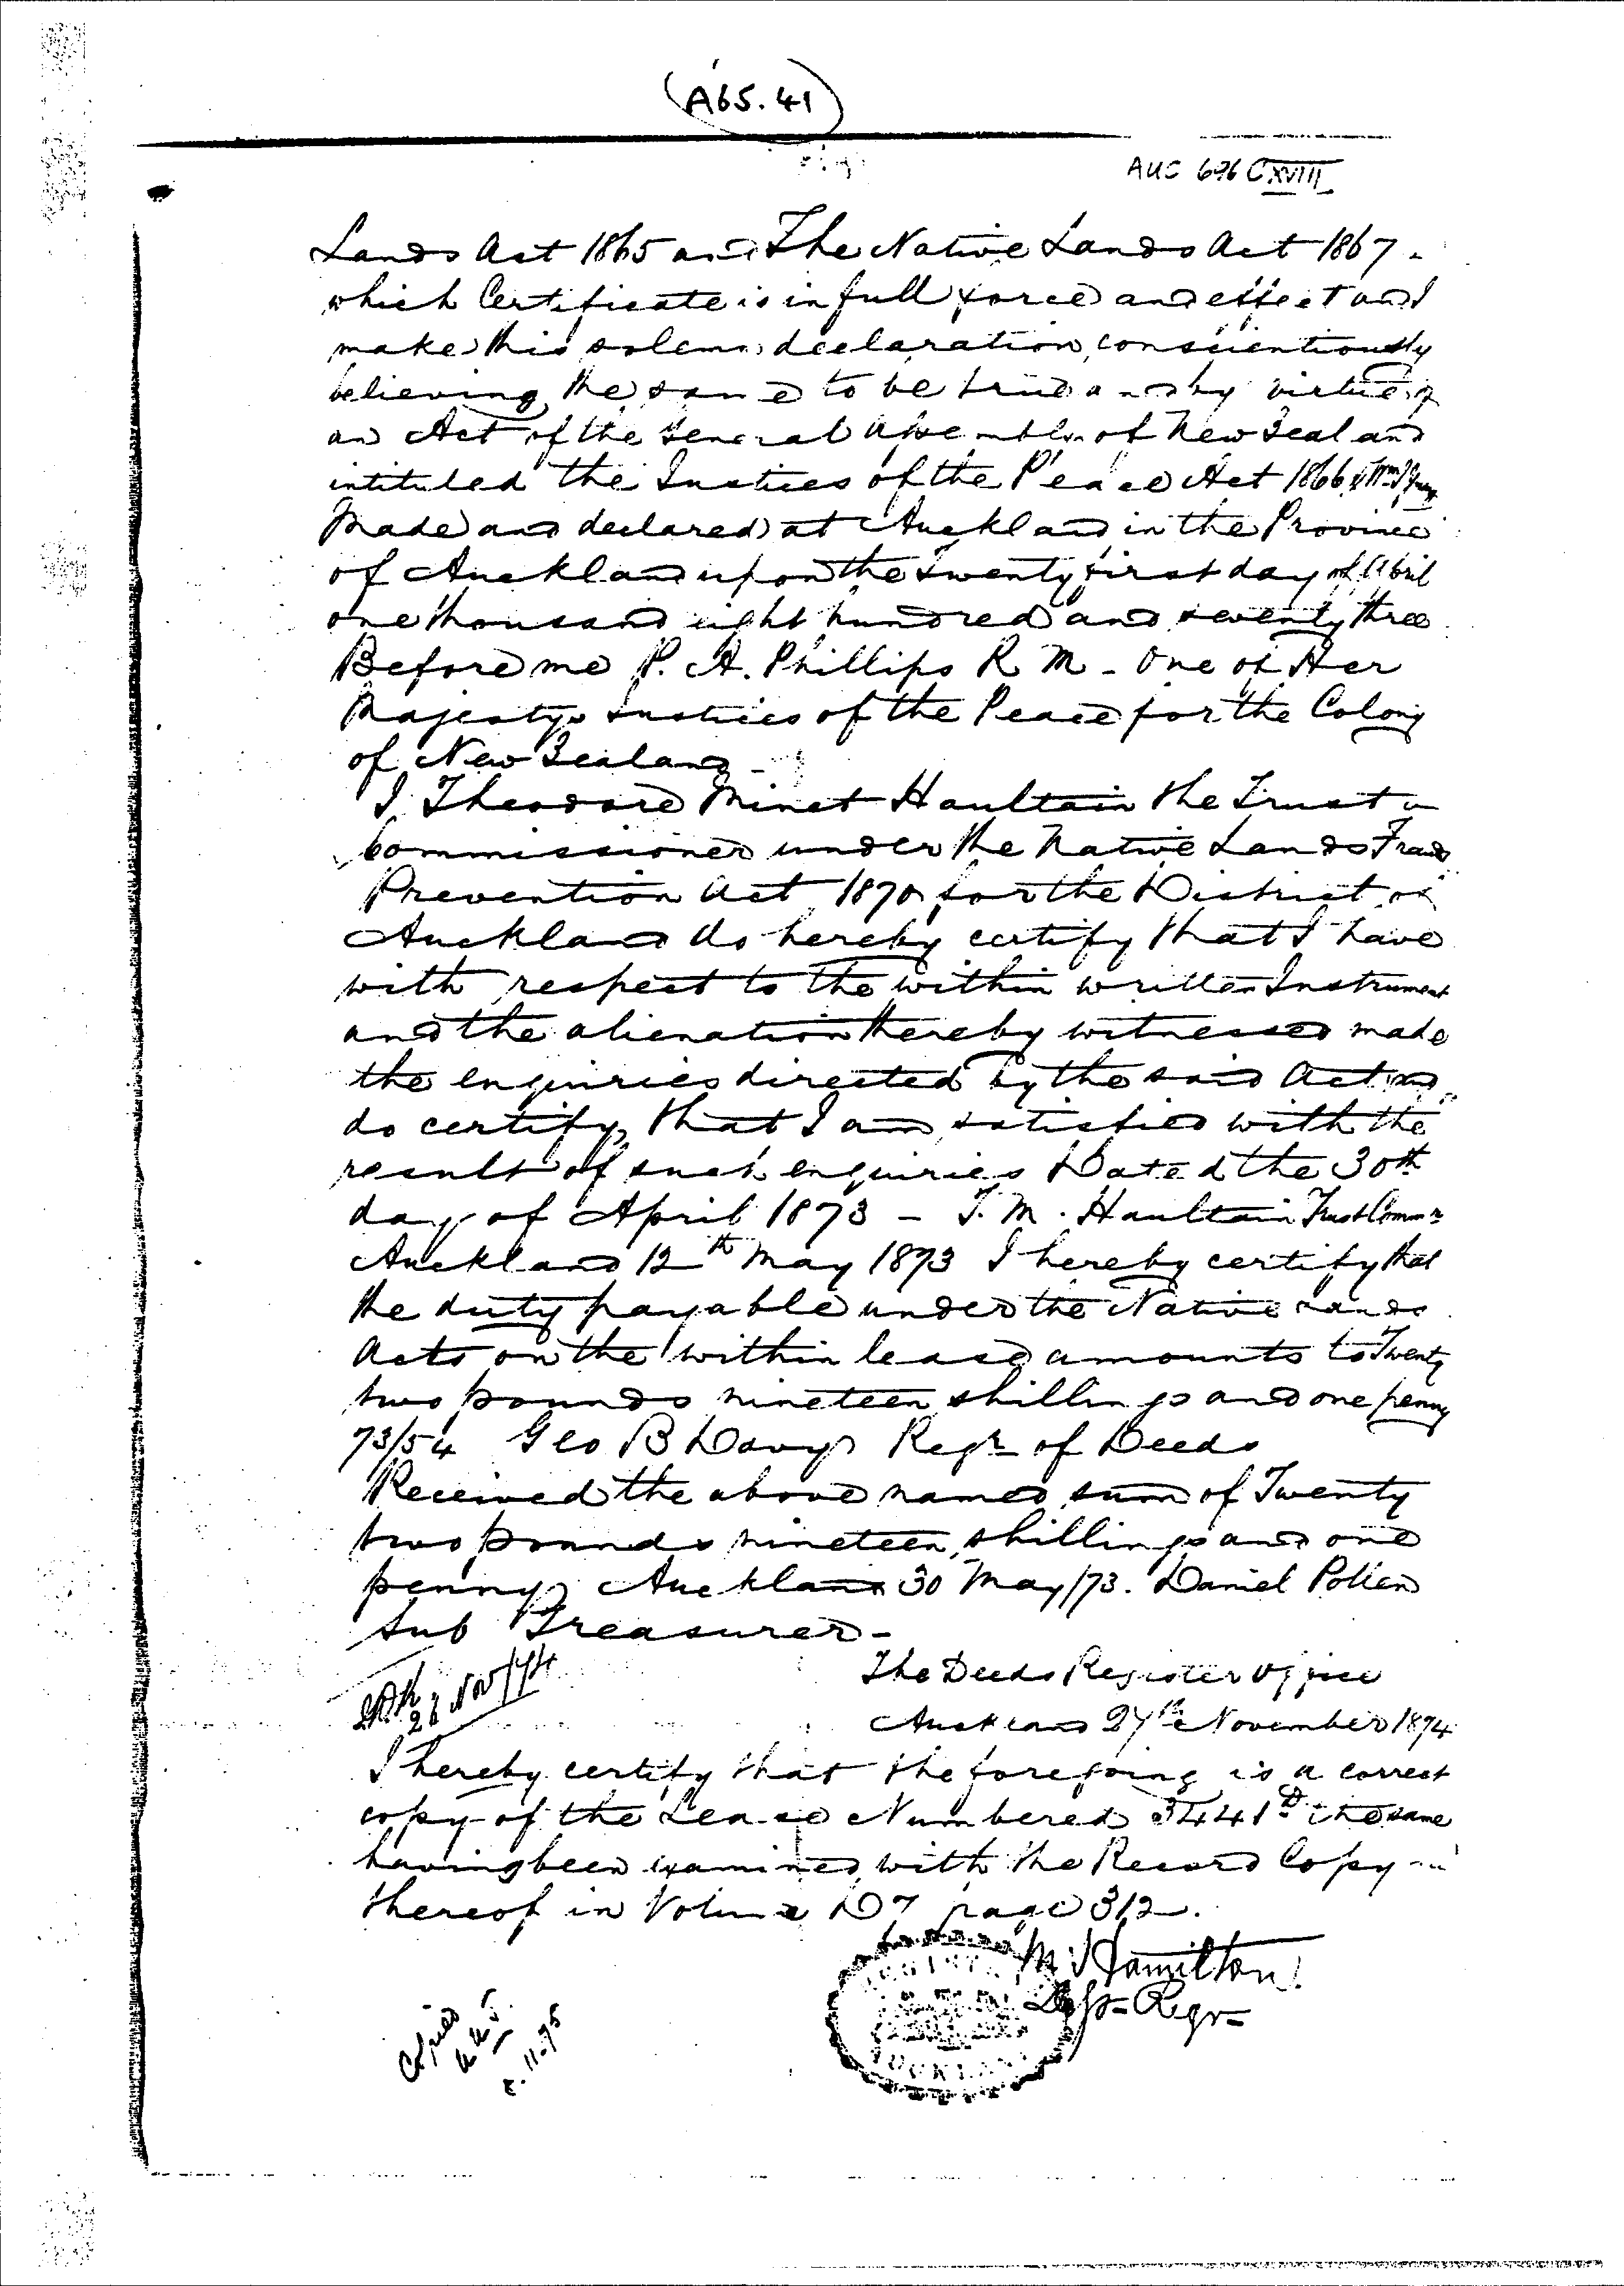 (A65.41)
AUC 696 CXVIII
Lands Act 1865 and The Native Lands Act 1867 -
which Certificate is in full force and effect and I
make this solemn declaration conscientiously
believing the same to be true and by virtue of
an Act of the General Assembly of New Zealand
intituled the Justices of the Peace Act 1866
Made and declared at Auckland in the Province
of Auckland upon the twenty first day of April
one thousand eight hundred and seventy three
Before me P. A. Phillips R M - One of Her
Majestys Justices of the Peace for the Colony
of New Zealand -
I Theodore Minet Haultain the Trust
Commissioner under the Native Lands Frauds
Prevention Act 1870 for the District of
Auckland do hereby certify that I have
with respect to the within written Instrument
and the alienation thereby witnessed made
the enquiries directed by the said Act and
do certify that I am satisfied with the
result of such enquiries Dated the 30th
day of April 1873 - T. M. Haultain Trust Commr
Auckland 12th May 1873 I hereby certify that
the duty payable under the Native Lands
Acts on the within lease amounts to Twenty
two pounds nineteen shillings and one penny
73/54 Geo B Davy Regr of Deeds
Received the above named sum of Twenty
two pounds nineteen shillings and one
penny Auckland 30 May/73. Daniel Pollen
Sub Treasurer -
26 Nov/74
The Deeds Register Office
Auckland 27th November 1874
I hereby certify that the foregoing is a correct
copy of the Lease Numbered 3441D the same
having been examined with the Record Copy
thereof in Volume D7 page 312.
M. Hamilton
Dep- Regr-
Copied
11-75
AUCKLAND